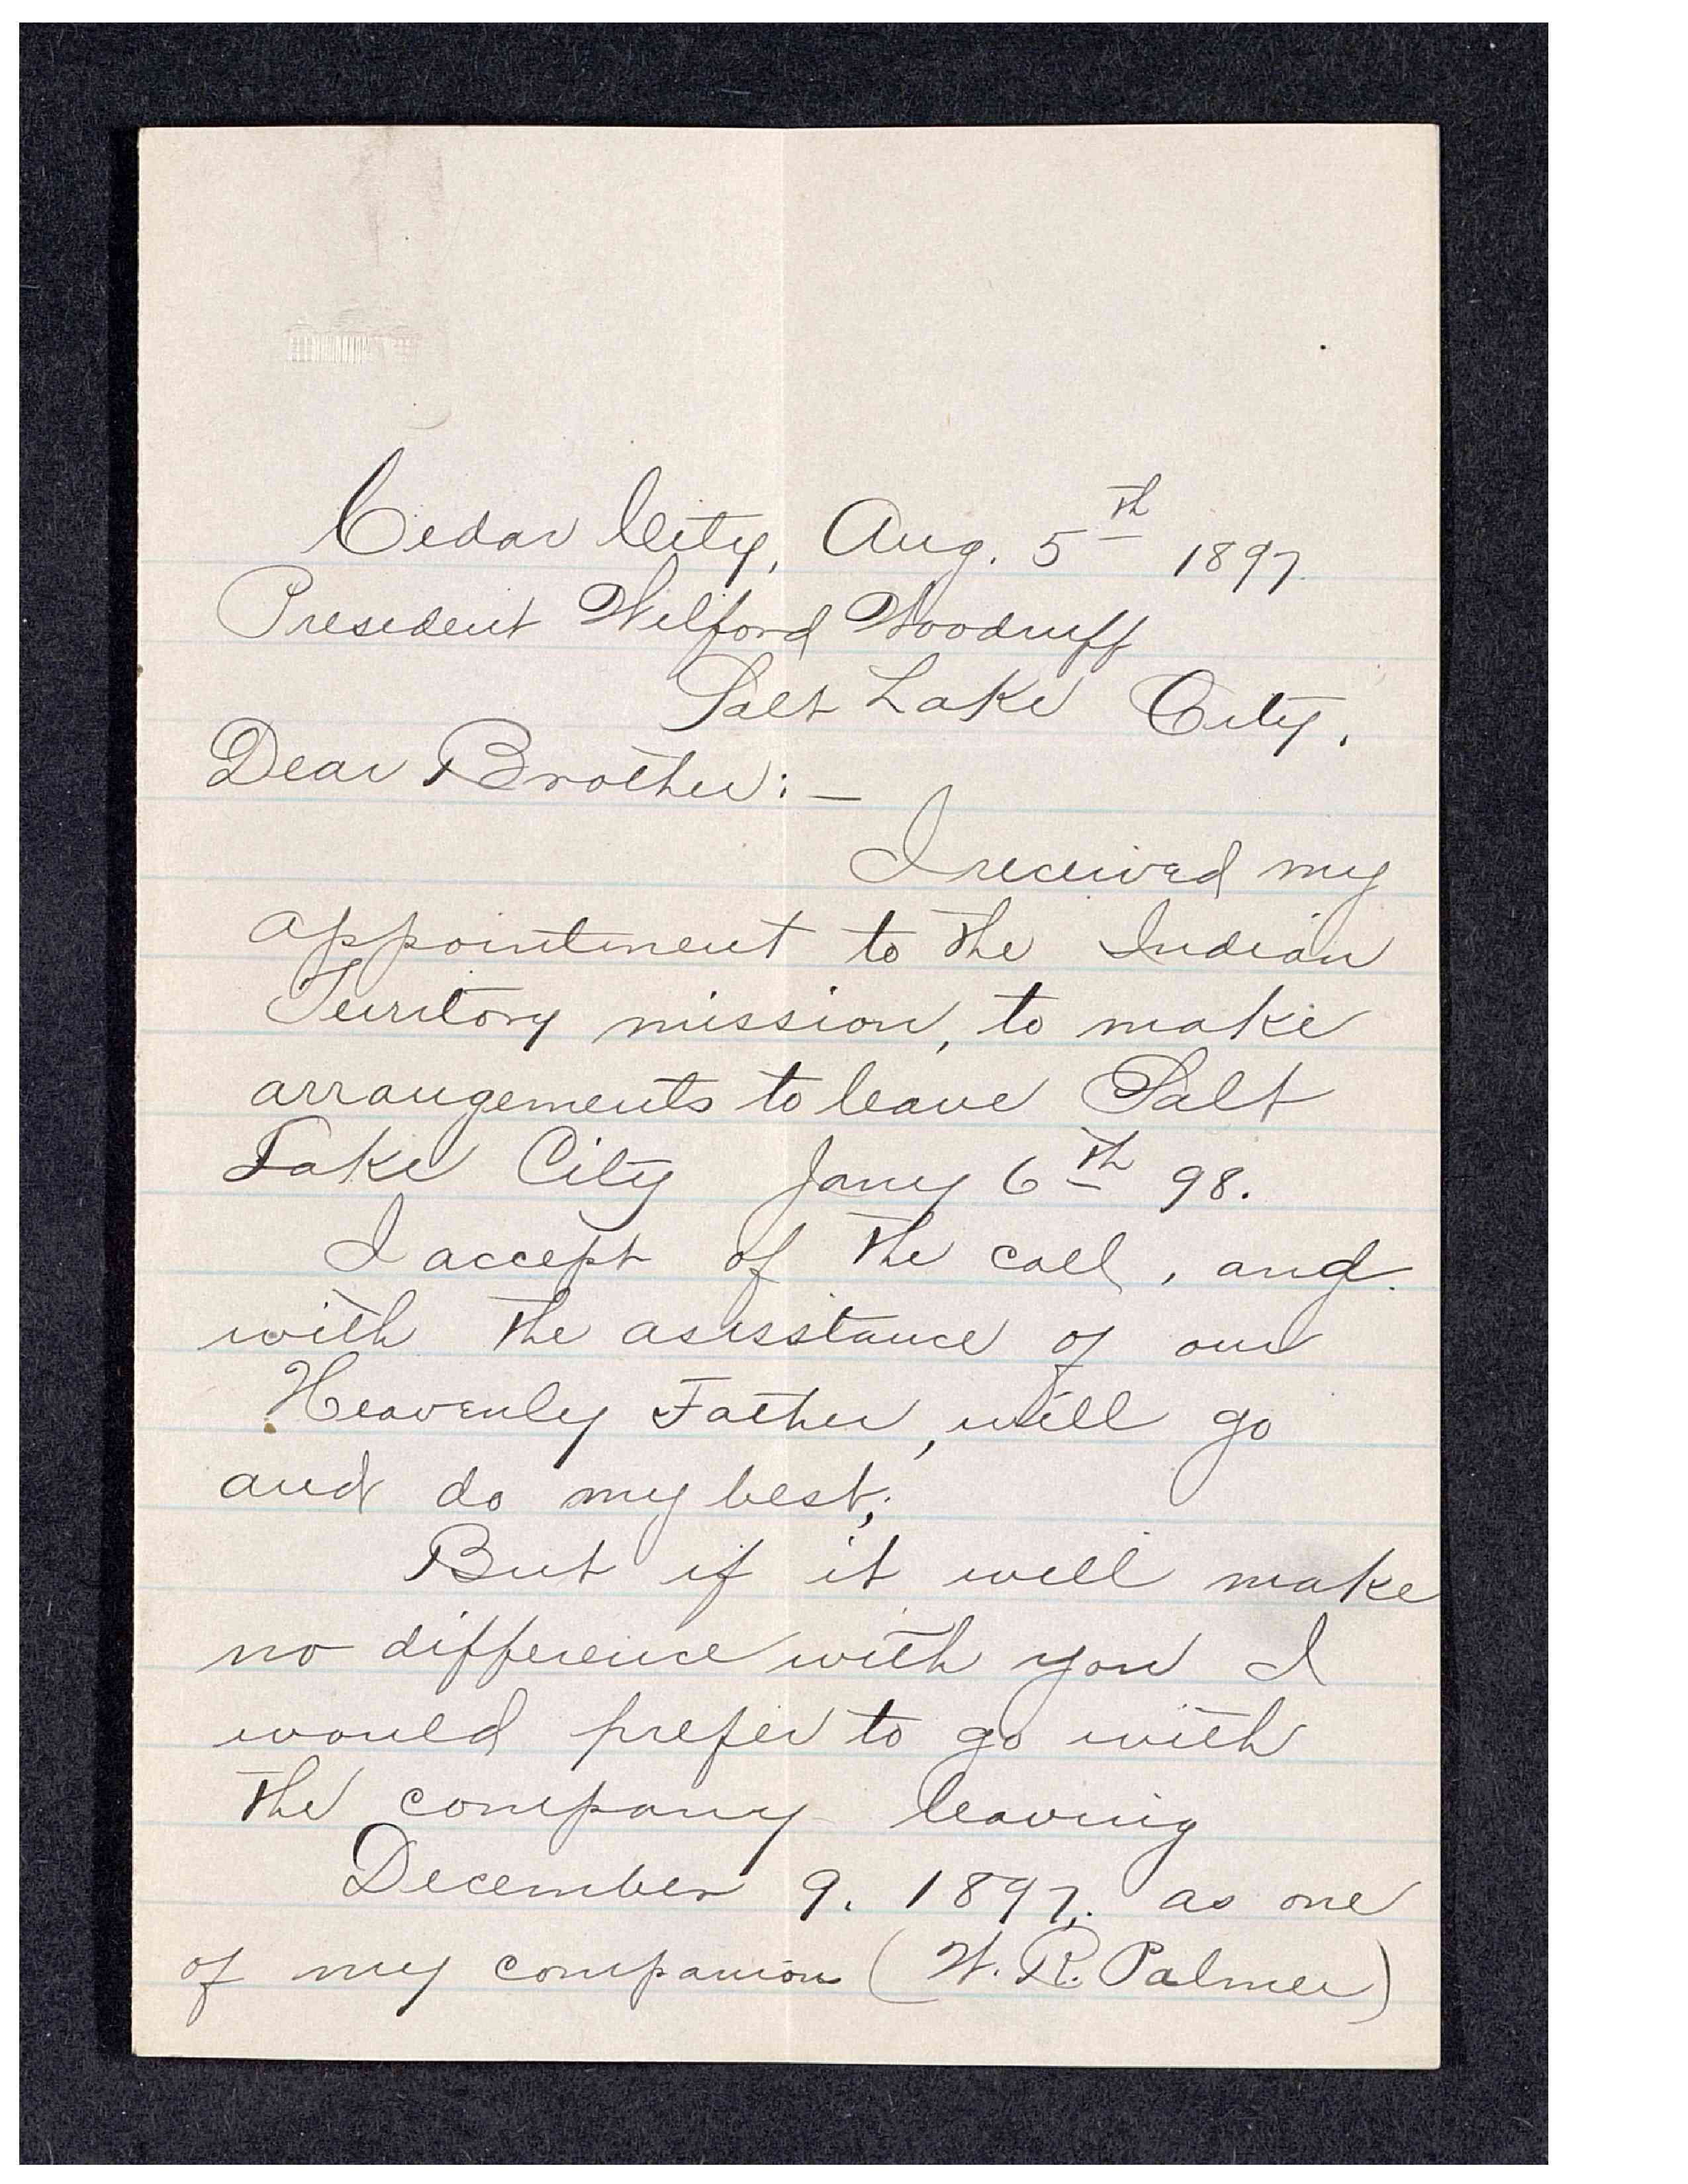 Cedar City, Aug. 5th 1897.
President Wilford Woodruff
Salt Lake City.
Dear Brother:—
I received my
appointment to the Indian
Territory mission, to make
arrangements to leave Salt
Lake City Jany 6th 98.
I accept of the call, and
with the assistance of our
Heavenly Father, will go
and do my best;
But if it will make
no difference with you I
would prefer to go with
the company leaving
December 9. 1897, as one
of my companion (W. R. Palmer)